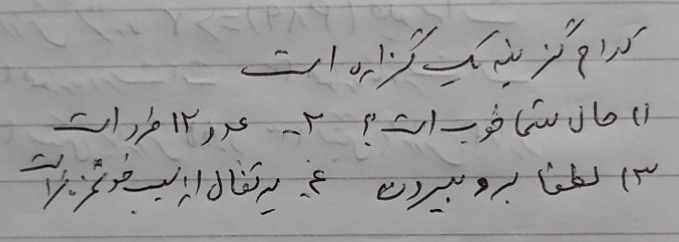 کدام گزینه یک گزاره است
۱) حال شما خوب است؟ ۲- عدد ۱۲ فرد است
۳) لطفا برو بیرون ۴- پرتقال از سیب خوشمزه‌تر است